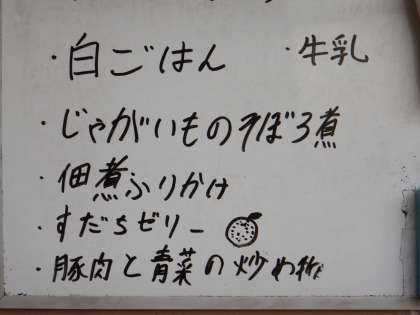 ・白ごはん ・牛乳
・じゃがいものそぼろ煮
・佃煮ふりかけ
・すだちゼリー
・豚肉と青菜の炒め物